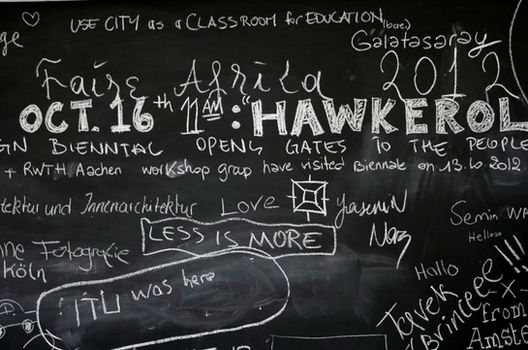 USE CITY as a CLASSROOM for EDUCATION
Galatasaray
Faire Afrika 2012
OCT. 16th 11AM: "HAWKEROL
GN BIENNIAL OPENS GATES TO THE PEOPLE
+ RWTH Aachen workshop group have visited Biennale on 13.10.2012
tektur und Innenarchitektur LOVE YaseMiN
Semin
Helloooo
LESS IS MORE Naz
Fotografie
köln
Hallo
ITU was here
Tarek
Brinceee!!!
-x-
from
Amst